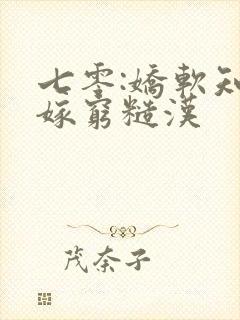 七零:嬌軟知
嫁窮糙漢
茂奈子